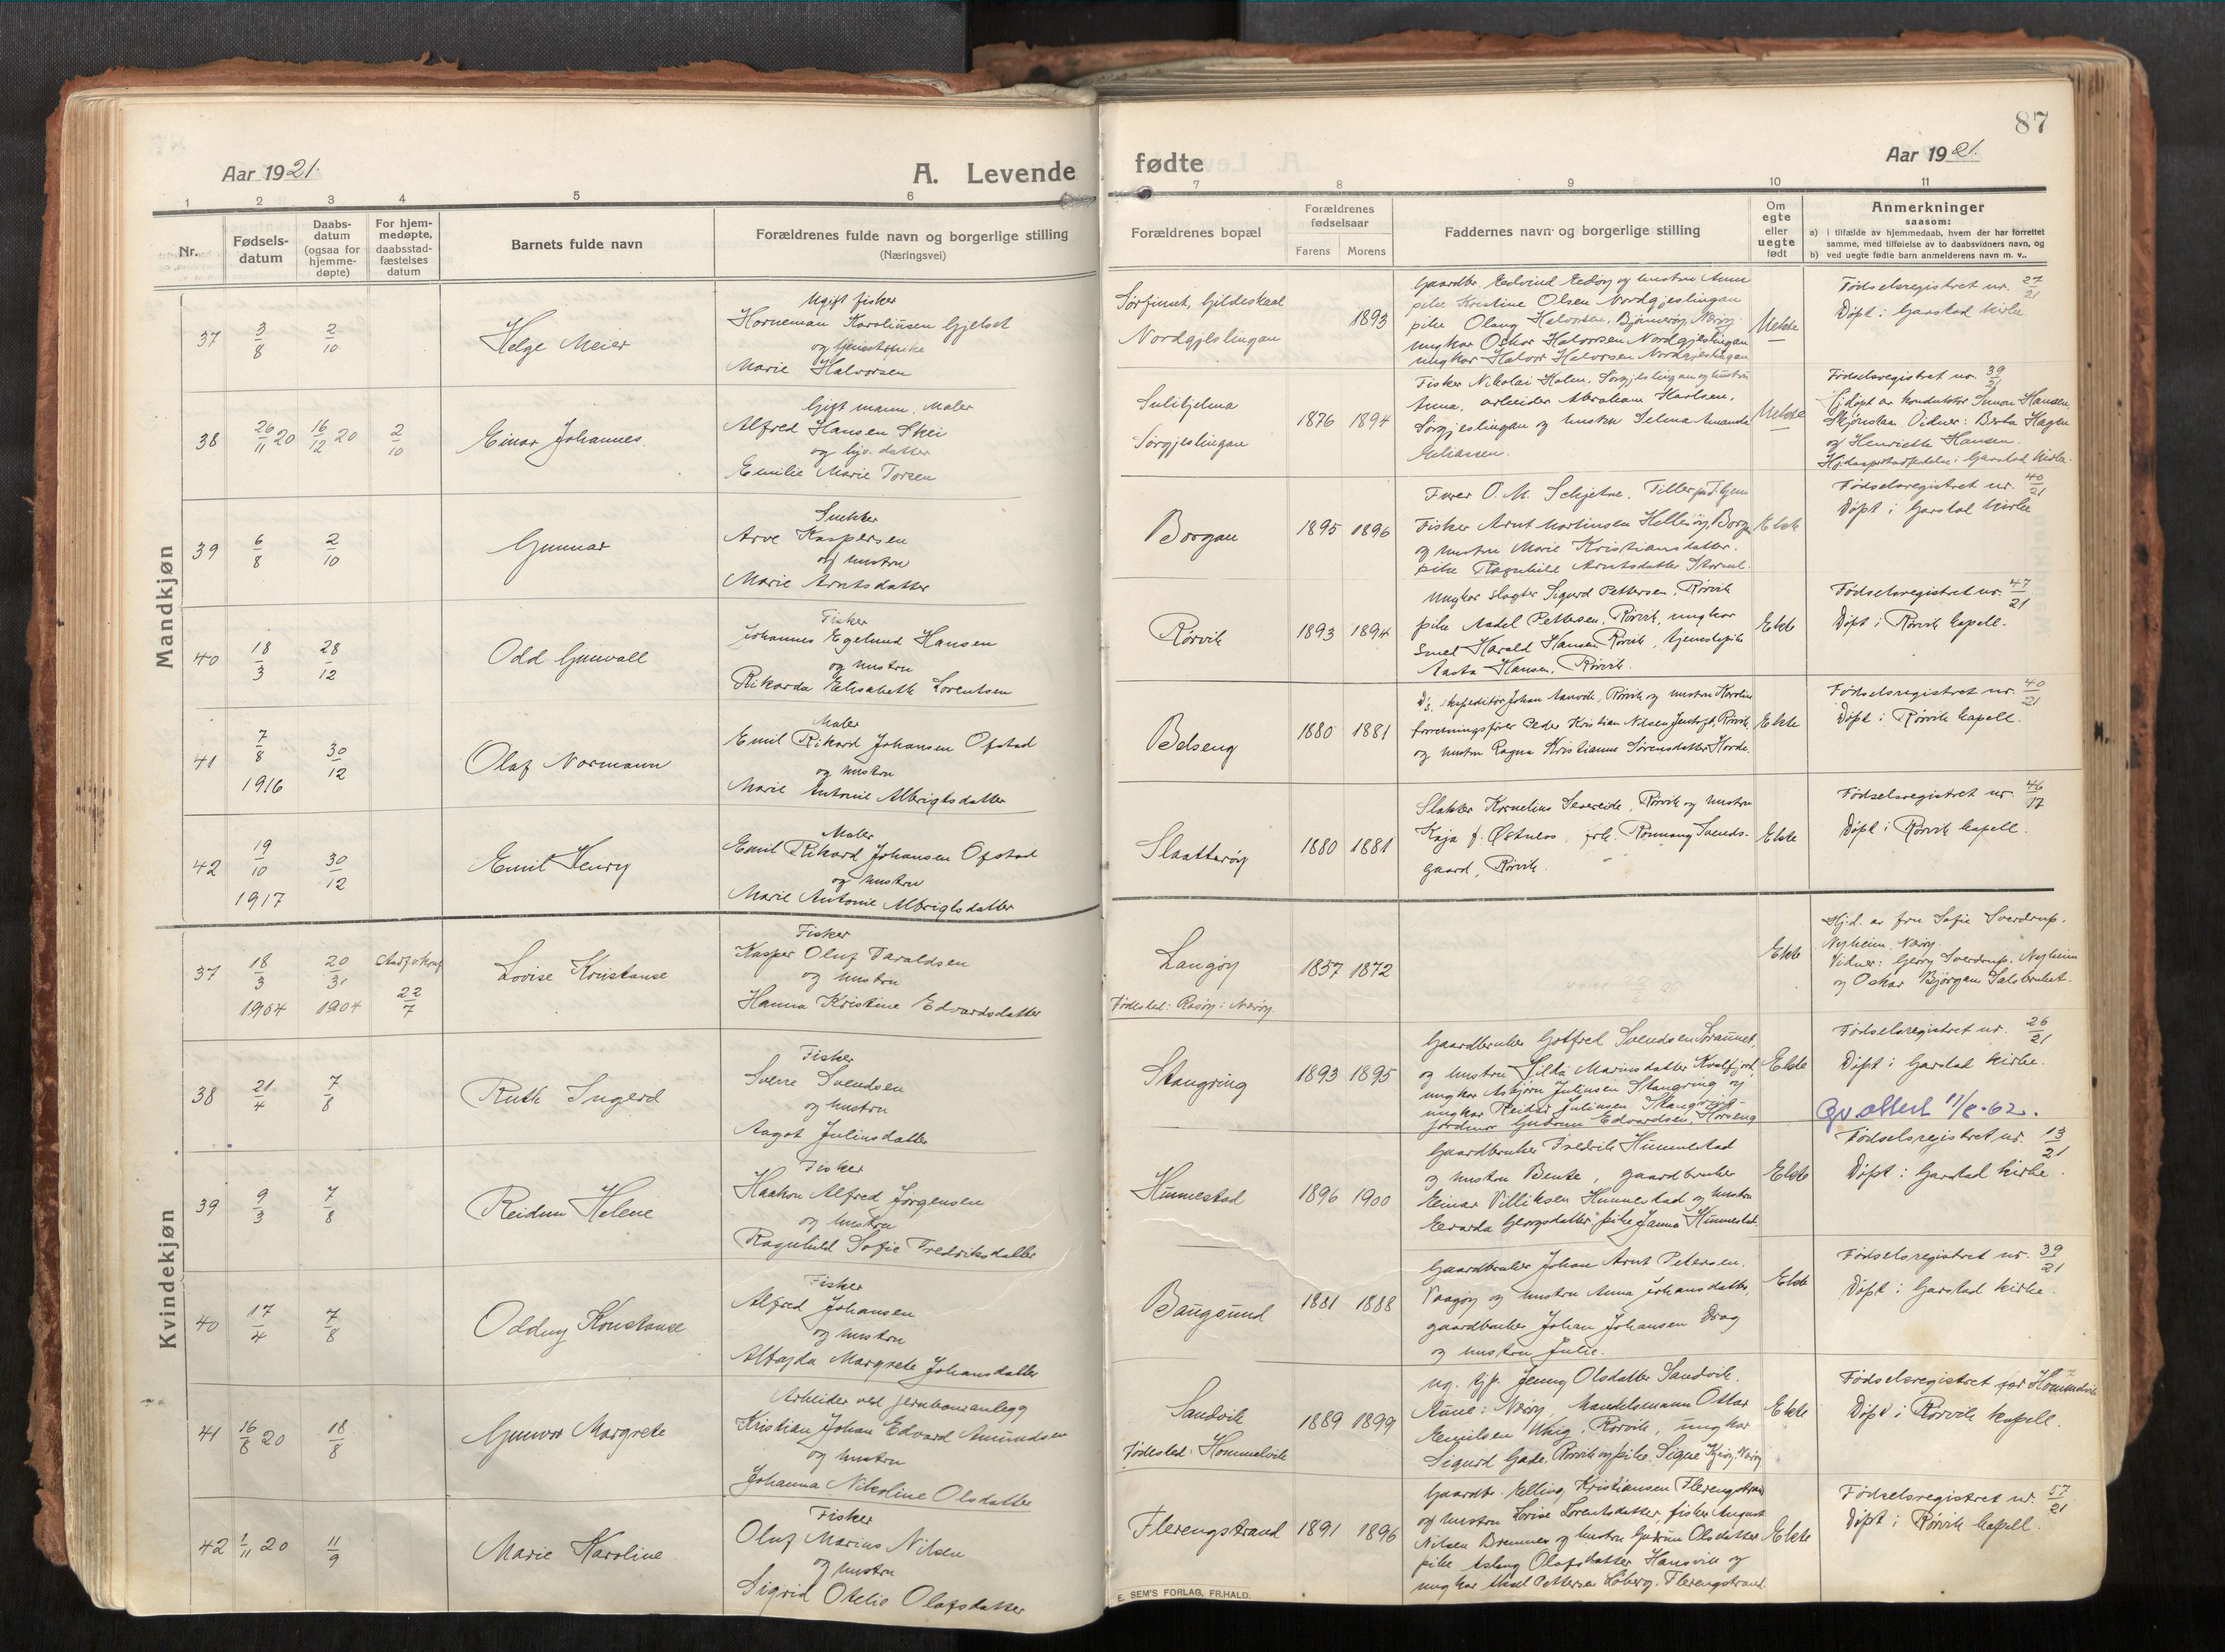 87
Aar 1921.
A. Levende
fødte
Aar 1921.
1 2 3 4 5 6
7 8 9 10 11
Nr.
Fødsels-
datum
Daabs-
datum
(ogsaa for
hjemme-
døpte)
For hjem-
medøpte,
daabsstad-
fæstelses
datum
Barnets fulde navn
Forældrenes fulde navn og borgerlige stilling
(Næringsvei)
Forældrenes bopæl
Forældrenes
fødselsaar
Farens Morens
Faddernes navn og borgerlige stilling
Om
egte
eller
uegte
født
Anmerkninger
saasom:
a) i tilfælde av hjemmedaab, hvem der har forrettet
samme, med tilføielse av to daabsvidners navn, og
b) ved uegte fødte barn anmelderens navn m. v..
Mandkjøn
37 3/8 2/10 Helge Meier
Ugift fisker
Horneman Karolinsen Gjelset
og tjenestepike
Marie Halvorsen
Sørfinset, Gildeskaal
Nordgjeslingan
1893
pike Kristine Olsen Nordgjeslingan
pike Olaug Halvorsen, Bjørnerøy, Nærøy
ungkar Oskar Halvorsen Nordgjeslingan
ungkar Halvor Halvorsen Nordgjeslingan
Uekte
Fødselsregistret nr. 27/21
Døpt i Garstad kirke
38 26/11 20 16/12 20 2/10 Einar Johannes.
Gift mann, Maler
Alfred Hansen Skei
og gjv. datter
Emilie Marie Torsen
Sulitjelma
Sørgjeslingan
1876 1894
Fisker Nikolai Holm, Sørgjeslingan og hustru
Anna, arbeider Abraham Karlsen,
Sørgjeslingan og hustru Selma Amanda
Eliassen.
Uekte
Fødselsregistret nr. 39/21
Hjdøpt av konduktør Simon Hansen,
Skjønstaa. Vidner: Berta Hagen
og Henriette Hansen.
Garstad kirke.
39 6/8 2/10 Gunnar
Snekker
Arve Kaspersen
og hustru
Marie Arntsdatter
Borgan
1895 1896
Furer O. M. Schjetne, Tiller
Fisker Arnt Martinsen Hellesøy, Borgan
og hustru Marie Kristiansdatter.
pike Ragnhild Arntsdatter
Ekte
Fødselsregistret nr. 40/21
Døpt i Garstad kirke
40 18/3 28/12 Odd Gunvall
Fisker
Johannes Egelund Hansen
og hustru
Rikarda Elisabeth Lorentsen
Rørvik
1893 1894
Ungkar slagter Sigurd Pettersen, Rørvik
pike Aadel Pettersen, Rørvik, ungkar
smed Harald Hansen Rørvik, tjenestepike
Aasta Hansen, Rørvik.
Ekte
Fødselsregistret nr. 47/21
Døpt i Rørvik kapell.
41 7/8 1916 30/12 Olaf Normann
Maler
Emil Rikard Johansen Ofstad
og hustru
Marie Antonie Albrigtsdatter
Belseng
1880 1881
D.s. ekspeditør Johan Aanvik, Rørvik og hustru Karoline
forretningsfører Peder Kristian Nilsen Jentoft, Rørvik
og hustru Ragna Kristianne Sørensdatter Horde.
Ekte
Fødselsregistret nr. 40/21
Døpt i Rørvik kapell.
42 19/10 1917 30/12 Emil Henry
Maler
Emil Rikard Johansen Ofstad
og hustru
Marie Antonie Albrigtsdatter
Slaatterøy
1880 1881
Slakter Kornelius Severeide, Rørvik og hustru
Kaja f. Østnes, frk. Rønnaug Svends-
gaard, Rørvik.
Ekte
Fødselsregistret nr. 46/17
Døpt i Rørvik kapell.
Kvindekjøn
37 18/3 1904 20/3 1904 22/7 Lovise Konstanse
Fisker
Kasper Oluf Taraldsen
og hustru
Hanna Kristine Edvardsdatter
Langøy
Fødested: Risøy i Nærøy.
1857 1872
Ekte
Hjd. av fru Sofie Sverdrup.
Nyheim, Nærøy.
Vidner: Georg Sverdrup, Nyheim
og Oskar Bjørgan Salsbruket.
38 21/4 7/8 Ruth Ingerd
Fisker
Sverre Svendsen
og hustru
Aagot Juliusdatter
Stangring
1893 1895
Gaardbruker Gotfred Svendsen
og hustru Hilda Mariusdatter Kvalfjord,
ungkar Asbjørn Juliussen Stangring og
ungkar Reidar Juliussen Stangring -
jordmor Gudrun Edvardsen, Horseng
Ekte
Fødselsregistret nr. 26/21
Døpt i Garstad kirke.
Ny attest 11/8-62.
39 9/3 7/8 Reidun Helene
Fisker
Haakon Alfred Jørgensen
og hustru
Ragnhild Sofie Fredriksdatter
Hunnestad
1896 1900
Gaardbruker Fredrik Hunnestad
og hustru Bente, gaardbruker
Einar Villiksen Hunnestad og hustru
Edvarda Georgsdatter, pike Janna Hunnestad.
Ekte
Fødselsregistret nr. 13/21
Døpt i Garstad kirke.
40 17/4 7/8 Oddny Konstanse
Fisker
Alfred Johansen
og hustru
Alfhilda Margrete Johansdatter
Baugsund
1881 1888
Gaardbruker Johan Arnt Petersen.
Vaagøy og hustru Anna Johansdatter,
gaardbruker Johan Johansen Drag
og hustru Julie.
Ekte
Fødselsregistret nr. 39/21
Døpt i Garstad kirke.
41 16/8 20 18/8 Gunvor Margrete
Arbeider ved jernbaneanlegg
Kristian Johan Edvard Amundsen
og hustru
Johanna Nikoline Olsdatter
Sandvik
Fødested: Hommelvik
1889 1899
ug. tjp. Jenny Olsdatter Sandvik,
Aune i Nærøy, Handelsmann Ottar
Emilsen Ukig, Rørvik, ungkar
Sigurd Gade, Rørvik og pike Signe
Ekte
Fødselsregistret for Hommelvik
Døpt i Rørvik kapell.
42 1/11 20 11/9 Marie Karoline
Fisker
Oluf Marius Nilsen
og hustru
Sigrid Otelie Olafsdatter
Flerengstrand
1891 1896
Gaardbr. Elling Kristiansen Flerengstrand
og hustru Lovise Lorentsdatter, fisker August
Nilsen Bremnes og hustru Gudrun Olsdatter
pike Aslaug Olafsdatter Hansvik og
ungkar Aksel Pettersen Løberg, Flerengstrand.
Ekte
Fødselsregistret nr. 57/21
Døpt i Rørvik kapell.
E. SEM'S FORLAG, FR.HALD.